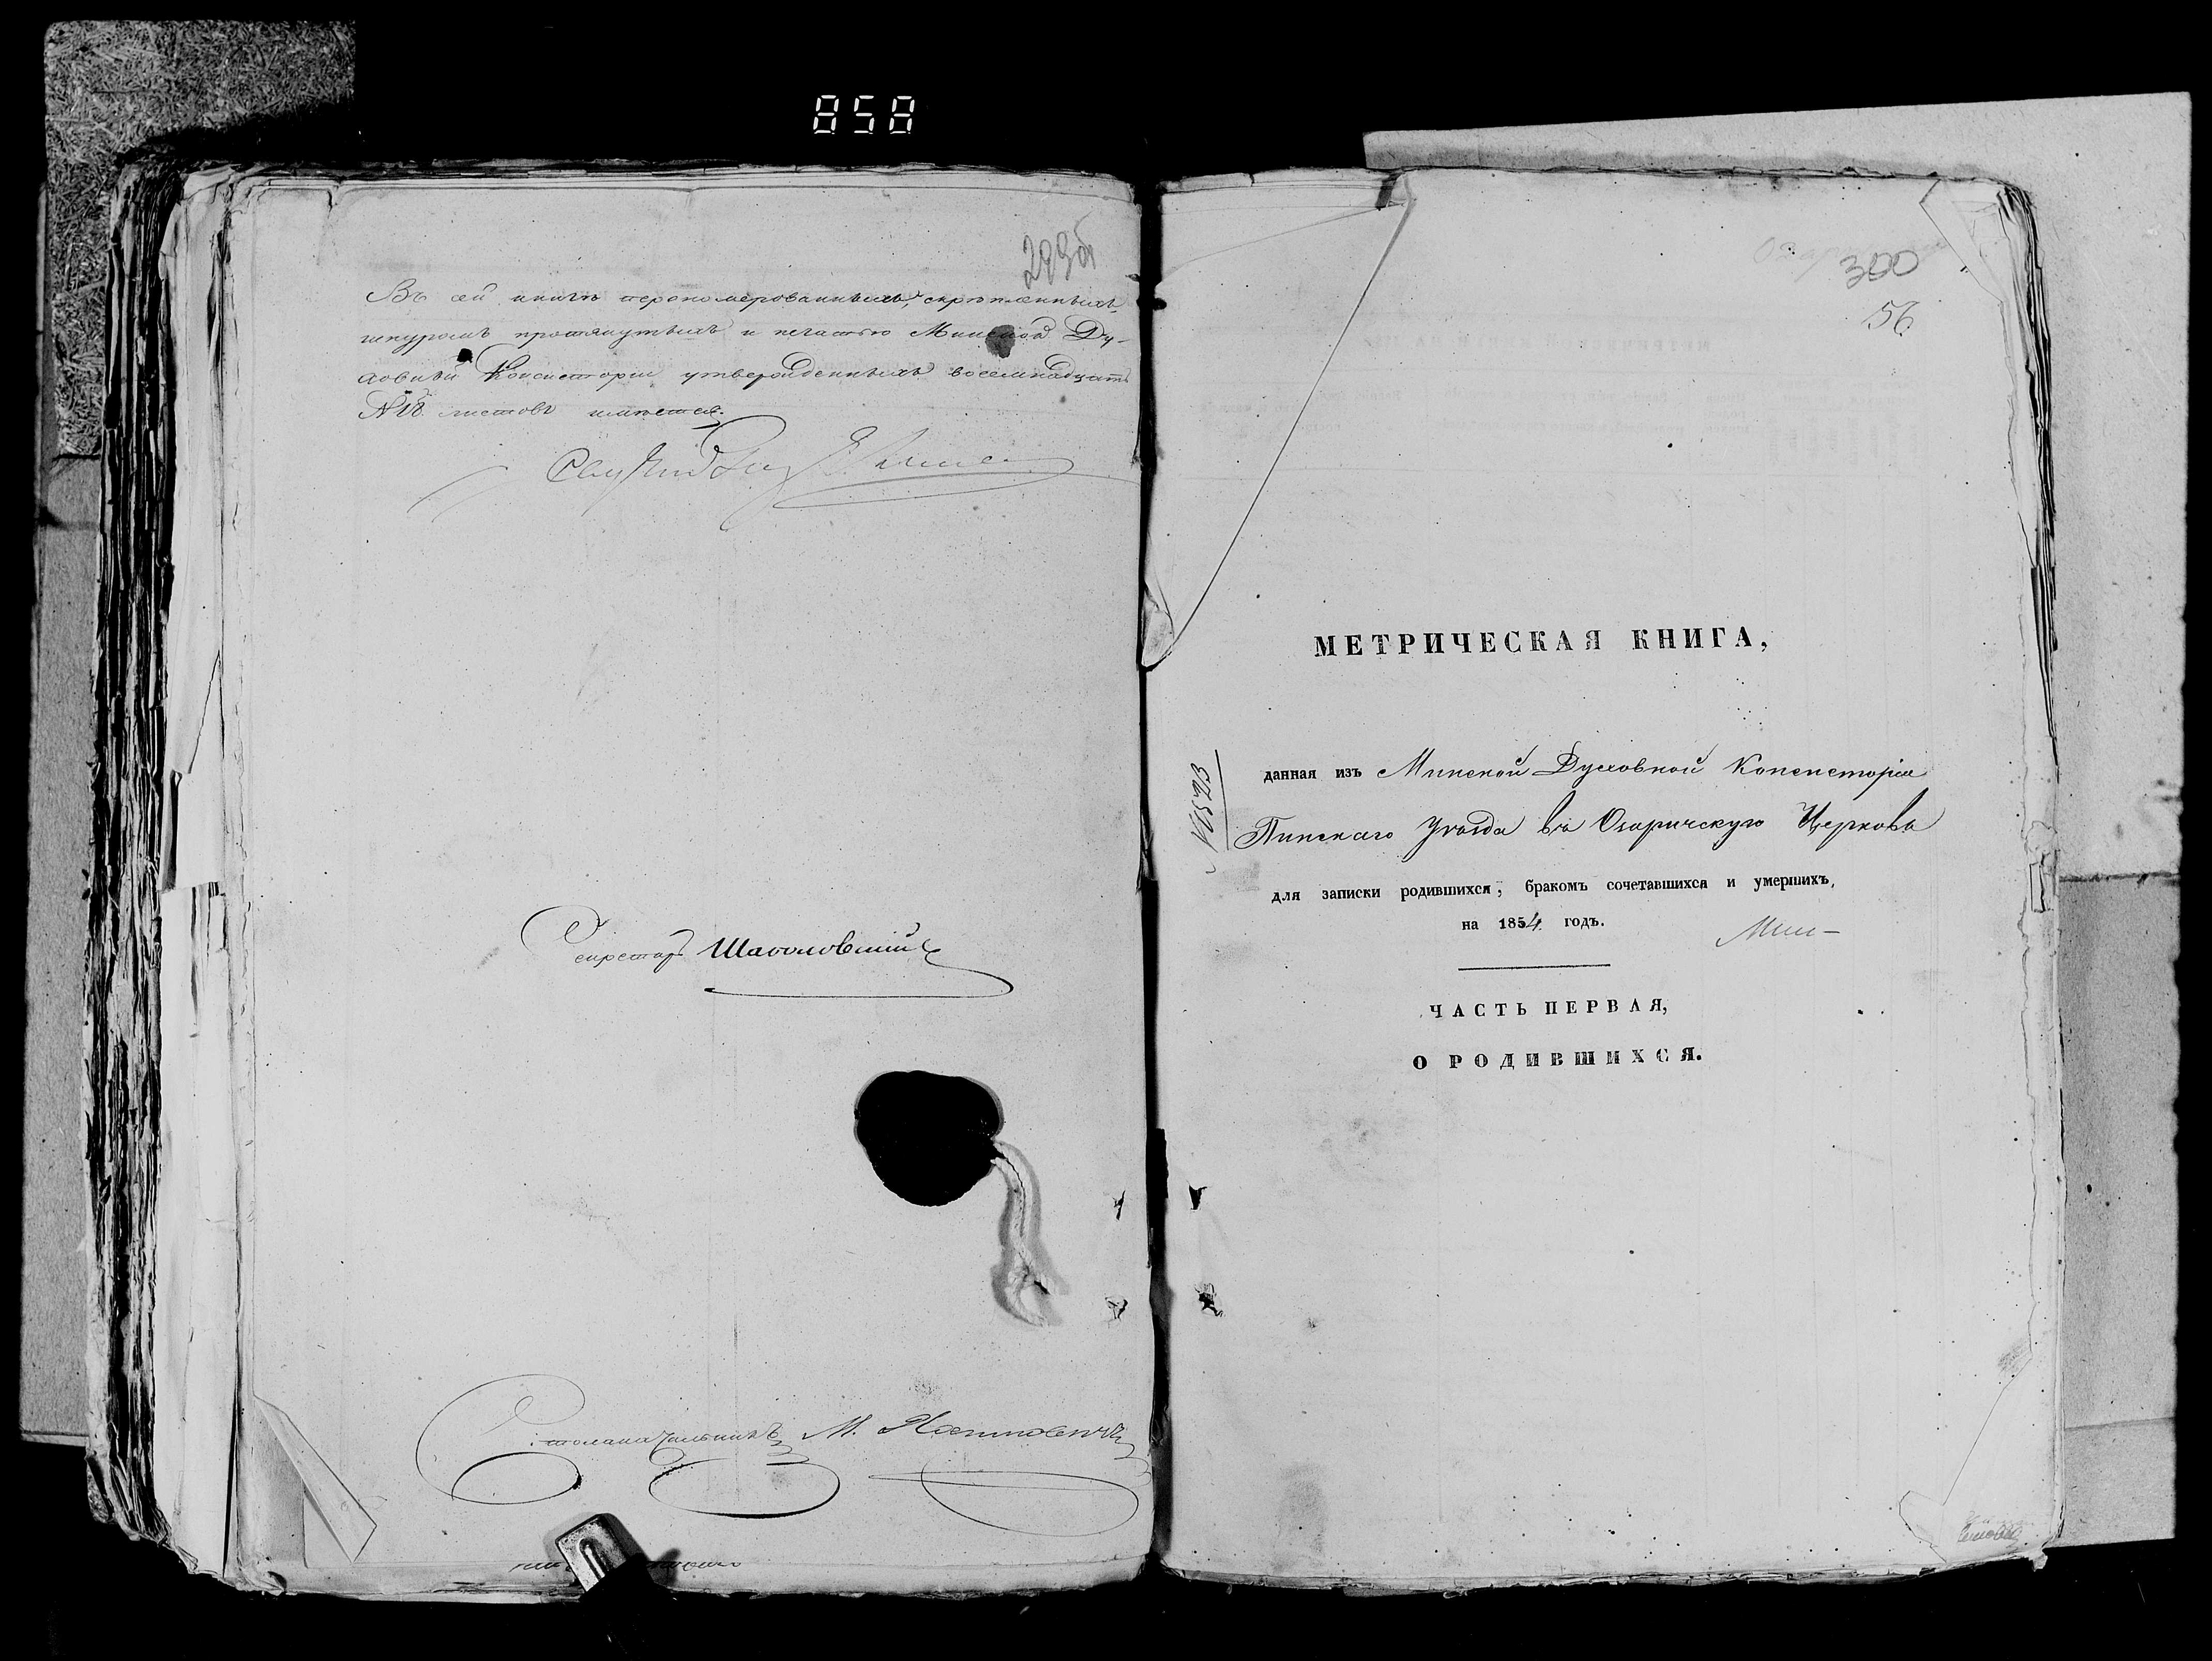 858
299об
Въ сей книгѣ перенумерованныхъ, скрѣпленныхъ,
шнуромъ протянутыхъ и печатью Минской Ду-
ховной Консисторіи утвержденныхъ восемнадцать
№ 18. листовъ имѣется.
Секретарь Шаболовскій
Столоначальникъ М.
300
56
МЕТРИЧЕСКАЯ КНИГА,
№ 523
данная изъ Минской Духовной Консисторіи
Пинскаго Уѣзда въ Озаричскую Церковь
для записки родившихся, бракомъ сочетавшихся и умершихъ,
на 1854 годъ.
Мин-
ЧАСТЬ ПЕРВАЯ,
О РОДИВШИХСЯ.